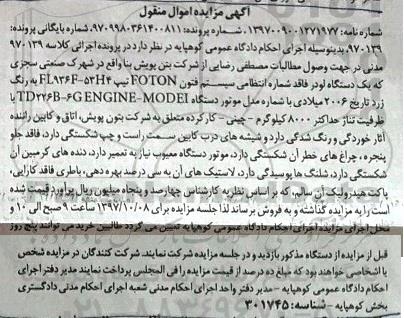 آگهی مزایده اموال منقول
شماره نامه: ۱۳۹۷۰۰۹۰۰۱۲۷۱۹۷۷، شماره پرونده: ۹۷۰۹۹۸۰۳۶۱۴۰۰۸۱۱، شماره بایگانی پرونده:
۹۷۰۱۳۹، بدینوسیله اجرای احکام دادگاه عمومی کوهپایه در نظر دارد در پرونده اجرائی کلاسه ۹۷۰۱۳۹
مدنی در جهت وصول مطالبات مصطفی رضایی از شرکت بتن پویش بنا واقع در شهرک صنعتی سجزی
که یک دستگاه لودر فاقد شماره انتظامی سیستم فتون FOTON تیپ FL936F-53H4 به رنگ
زرد تاریخ ۲۰۰۶ میلادی با شماره مدل موتور دستگاه TD226B-6G ENGINE-MODEL با
ظرفیت تناژ حداکثر ۸۰۰۰ کیلوگرم - چینی - کارکرده متعلق به شرکت بتون پویش، اتاق و کابین راننده
آثار خوردگی و رنگ شدگی دارد و شیشه های درب کابین سمت راست و چپ شکستگی دارد، فاقد جلو
پنجره، چراغ های خطر آن شکستگی دارد، موتور دستگاه معیوب نیاز به تعمیر دارد، دنده های کرمبین آن
شکستگی دارد، شلنگ ها پوسیدگی دارد، لاستیک های آن به سی درصد بهره دهی، باطری فاقد کارایی،
پاکت هیدرولیک آن سالم، که بر اساس نظریه کارشناس چهارصد و پنجاه میلیون ریال برآورد قیمت شده
است را به مزایده گذاشته و به فروش برساند لذا جلسه مزایده برای ۱۳۹۷/۱۰/۰۸ ساعت ۹ صبح الی ۱۰ و
محل اجرای مزایده اجرای احکام دادگاه عمومی کوهپایه تعیین می گردد طالبین خرید می توانند پنج روز
قبل از مزایده از دستگاه مذکور بازدید و در جلسه مزایده شرکت نمایند. شرکت کنندگان در مزایده شخص
یا اشخاصی خواهند بود که مبلغ ده درصد از قیمت مزایده را فی المجلس پرداخت نمایند مدیر دفتر اجرای
احکام دادگاه عمومی کوهپایه - مدیر دفتر واحد اجرای احکام مدنی شعبه اجرای احکام مدنی دادگستری
بخش کوهپایه - شناسه: ۳۰۱۷۴۵